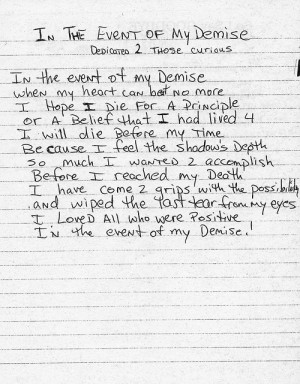 In The Event of My Demise
Dedicated 2 Those curious
In the event of my Demise
when my heart can beat no more
I Hope I Die For A Principle
or A Belief that I had lived 4
I will die Before My Time
Because I feel the shadow's Depth
so much I wanted 2 accomplish
Before I reached my Death
I have come 2 grips with the possibility
and wiped the last tear from my eyes
I Loved All who were Positive
In the event of my Demise!